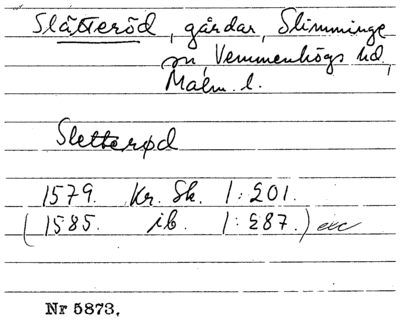 Slätteröd, gårdar, Slimminge
sn, Vemmenhögs hd,
Malm. l.
Sletterød
1579. Kr. Sk. 1:201.
(1585. ib. 1:287.) exc
Nr 5873.